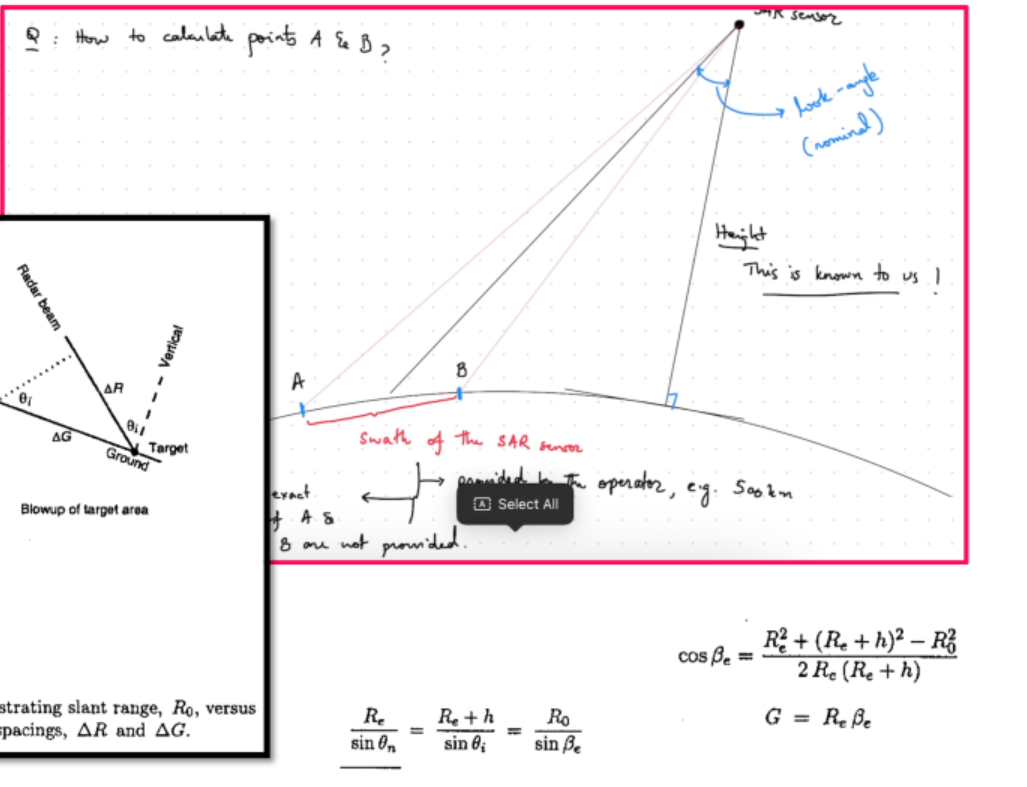 SAR sensor
Q : How to calculate points A & B ?
look-angle
(nominal)
Height
This is known to us !
A
B
swath of the SAR sensor
provided by the operator, e.g. 500 km
exact
of A &
B are not provided.
Select All
Radar beam
Vertical
θi
ΔR
θi
ΔG
Target
Ground
Blowup of target area
strating slant range, R0, versus
spacings, ΔR and ΔG.
cos βe = (Re² + (Re + h)² − R0²) / (2 Re (Re + h))
G = Re βe
Re / sin θn = (Re + h) / sin θi = R0 / sin βe